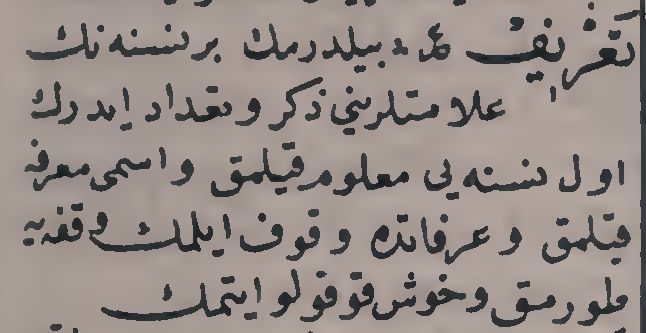 تعریف ع ه بیلدرمك بر نسنه نك
علامتلرینی ذكر و تعداد ایدرك
اول نسنه یی معلوم قیلمق و اسمی معرفه
قیلمق و عرفاتده وقوف ایلمك وقفه یه
طورمق و خوش قوقولو ایتمك